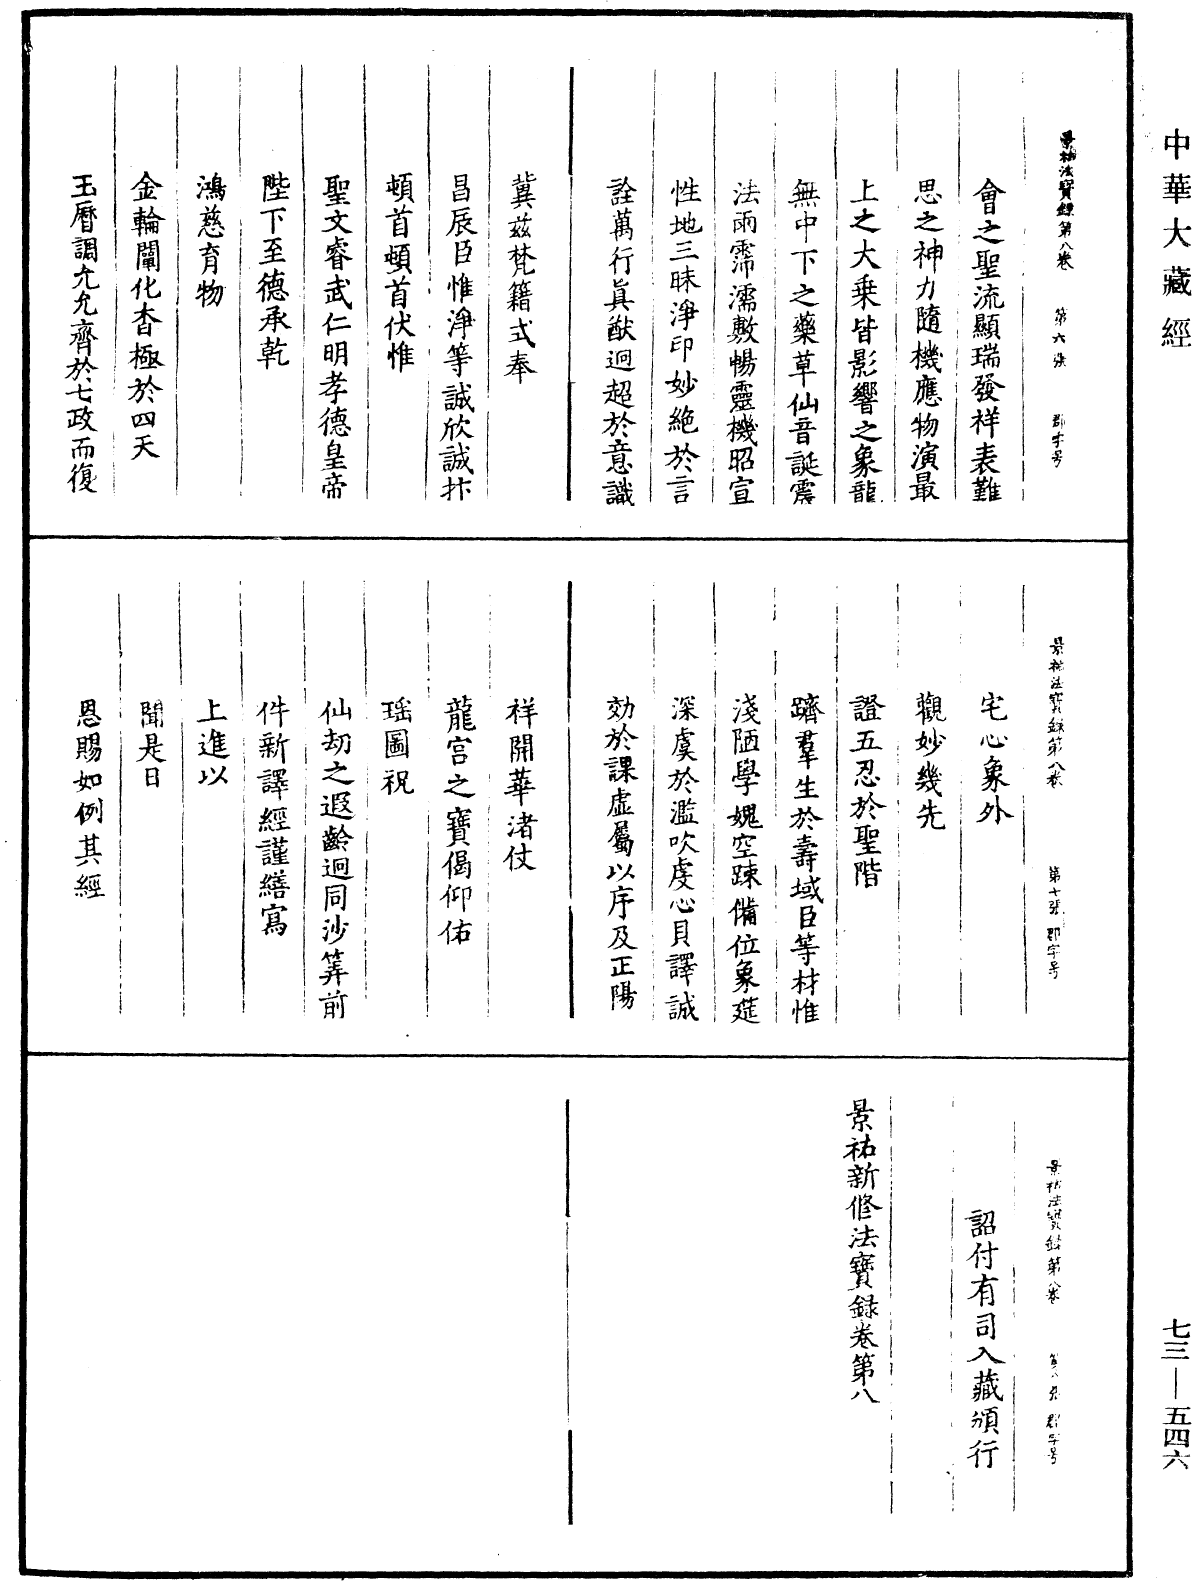 中華大藏經
景祐法寶錄第八卷　第六張　郡字号
會之聖流顯瑞發祥表難
思之神力隨機應物演最
上之大乗皆影響之象龍
無中下之藥草仙音誕震
法雨霈濡敷暢靈機昭宣
性地三昧淨印妙絶於言
詮萬行眞猷逈超於意識
冀茲梵籍式奉
昌辰臣惟淨等誠欣誠抃
頓首頓首伏惟
聖文睿武仁明孝德皇帝
陛下至德承乾
鴻慈育物
金輪闡化杳極於四天
玉曆調元允齊於七政而復
景祐法寶錄第八卷　第七張　郡字号
宅心象外
觀妙幾先
證五忍於聖階
躋羣生於壽域臣等材惟
淺陋學媿空踈備位象筵
深虞於濫吹虔心貝譯誠
効於課虛屬以序及正陽
祥開華渚仗
龍宫之寶偈仰佑
瑶圖祝
仙劫之遐齡逈同沙筭前
件新譯經謹繕寫
上進以
聞是日
恩賜如例其經
景祐法寶錄第八卷　張　郡字号
詔付有司入藏頒行
景祐新修法寶録卷第八
七三—五四六